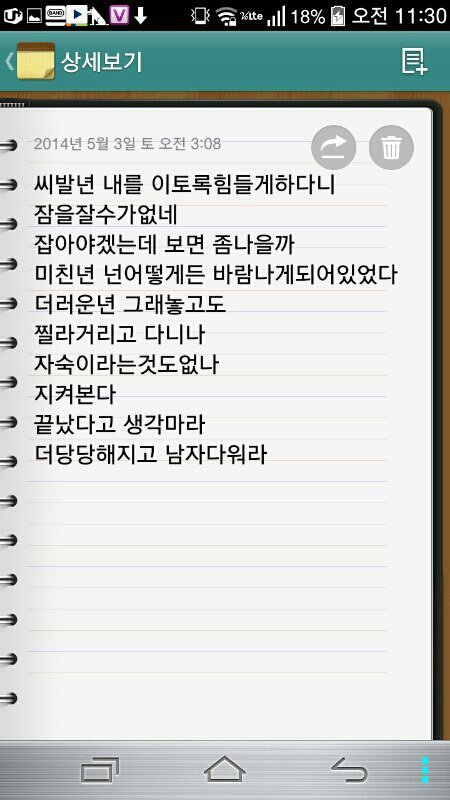 18% 오전 11:30
상세보기
2014년 5월 3일 토 오전 3:08
씨발년 내를 이토록힘들게하다니
잠을잘수가없네
잡아야겠는데 보면 좀나을까
미친년 넌어떻게든 바람나게되어있었다
더러운년 그래놓고도
찔라거리고 다니나
자숙이라는것도없나
지켜본다
끝났다고 생각마라
더당당해지고 남자다워라